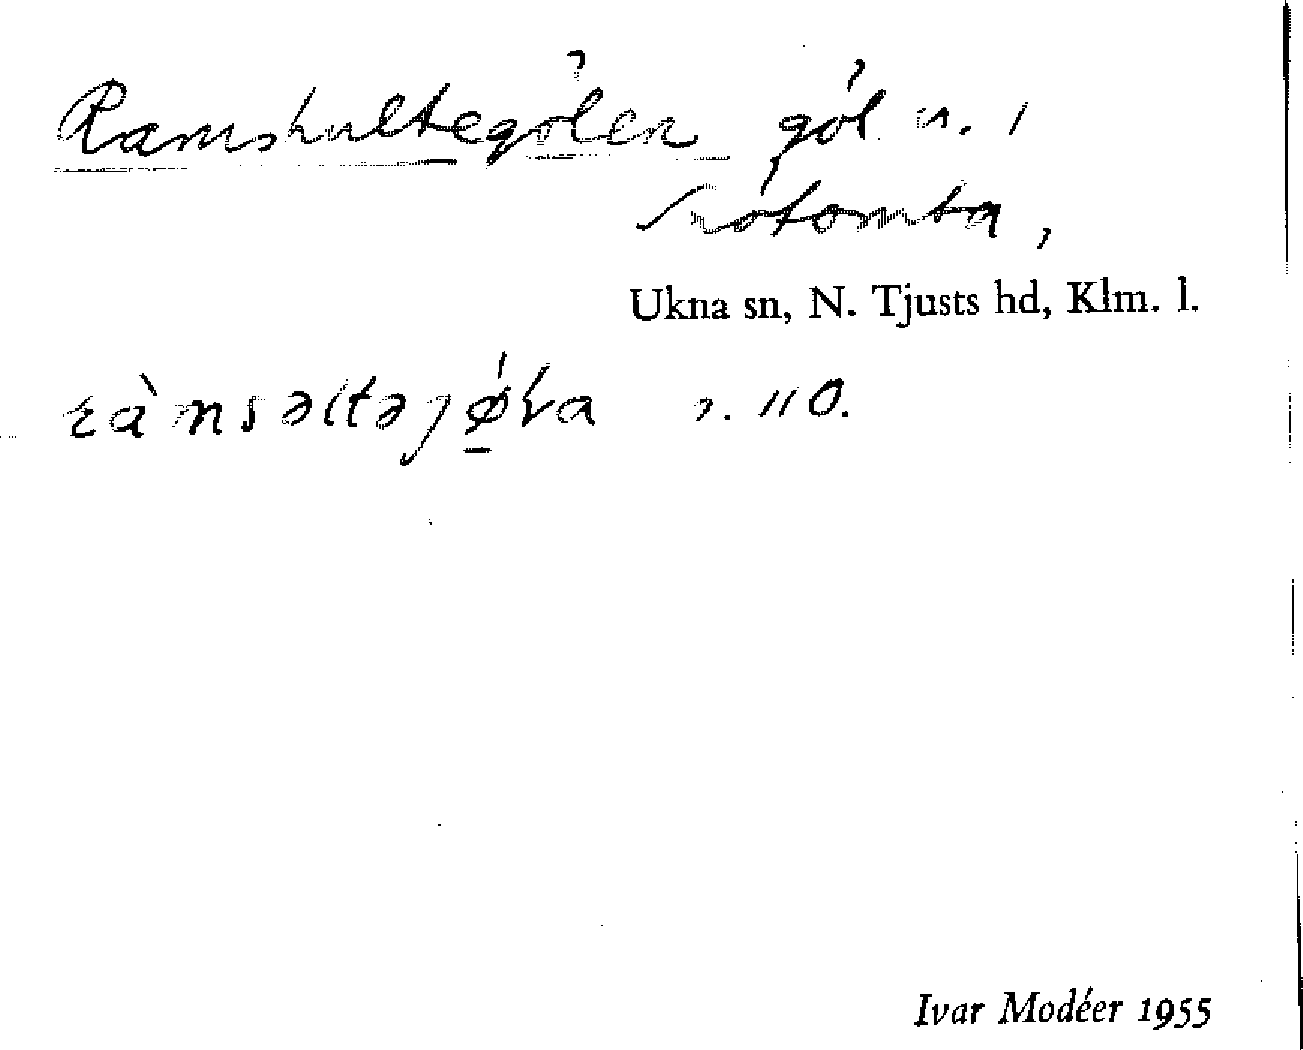 Ramshultegölen göl n. i
Ukna sn, N. Tjusts hd, Klm. l.
ràmsəltəjǿ̱ɫa n. 110.
Ivar Modéer 1955